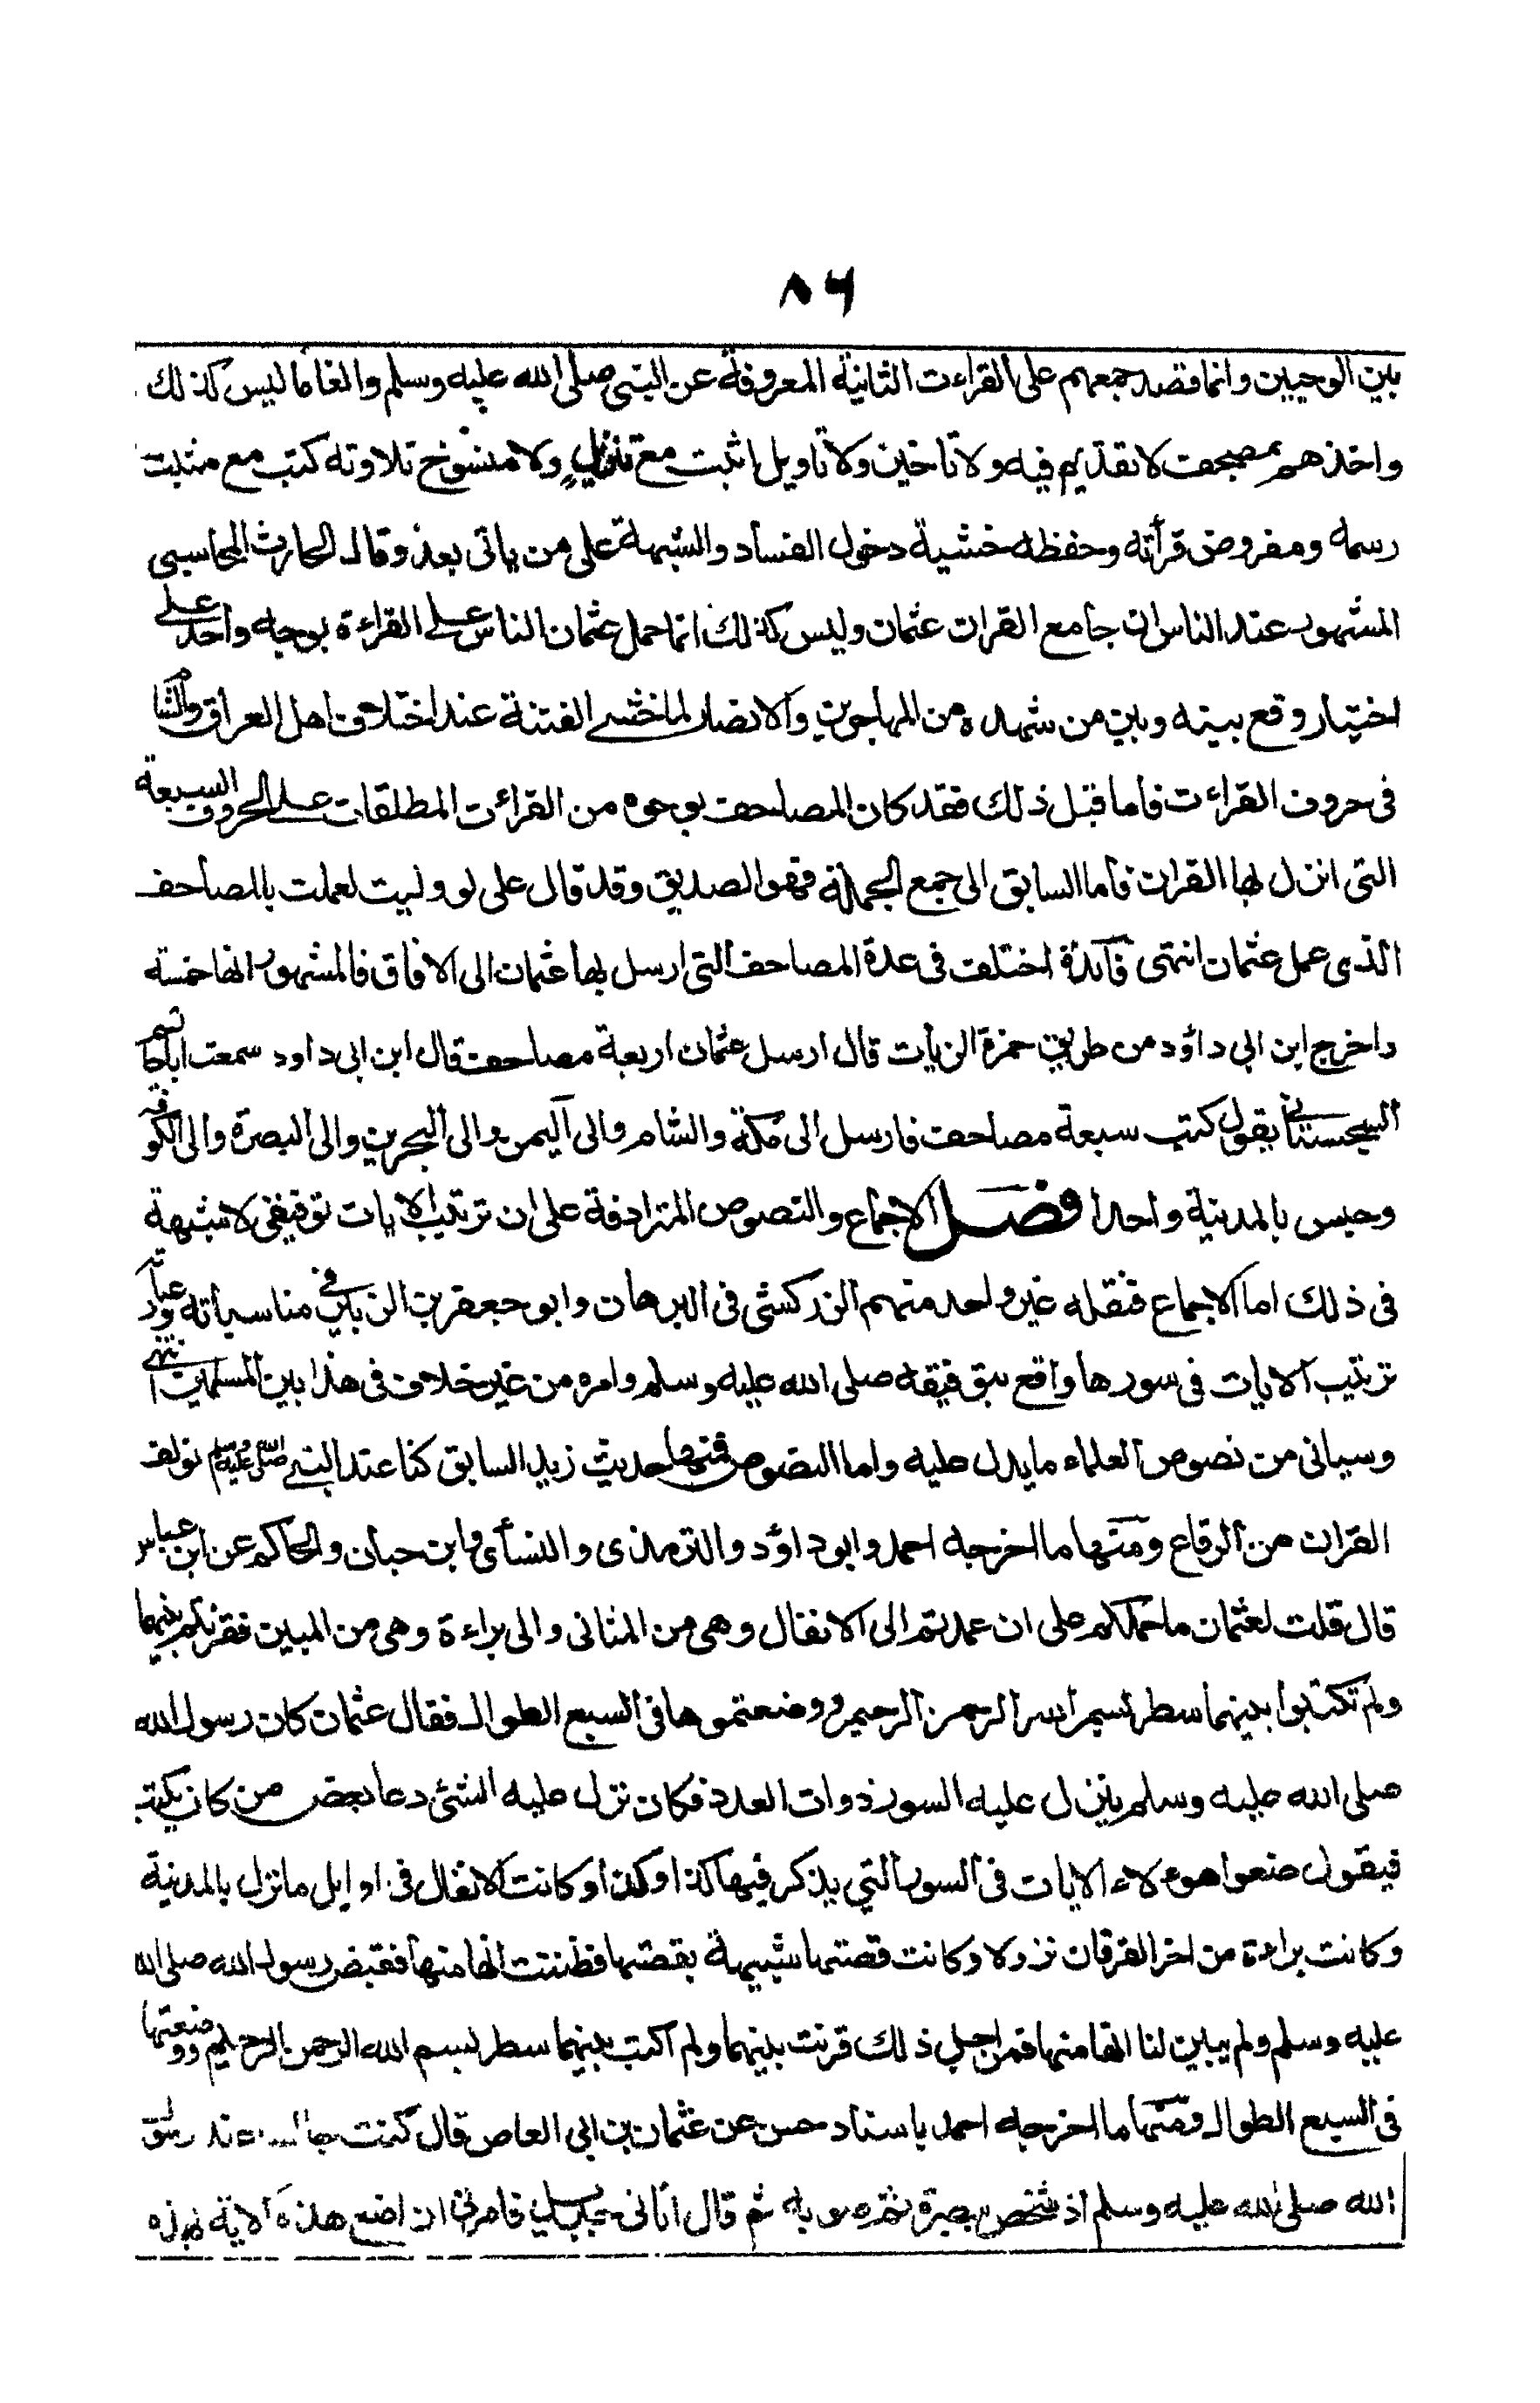 ۸۶
بين الوحيين وانما قصد جمعهم على القراءت الثانية المعروفة عن النبى صلى الله عليه وسلم والغاما ليس كذلك
واخذهم بمصحف لا تقديم فيه ولا تاخير ولا تاويل اثبت مع تنزيل ولا منسوخ تلاوته كتب مع مثبت
رسمه ومفروض قرأته وحفظه خشية دخول الفساد والشبهة على من ياتى بعد وقال الحارث المحاسبى
المشهور عند الناس ان جامع القران عثمان وليس كذلك انما حمل عثمان الناس على القراءة بوجه واحد على
اختيار وقع بينه وبين من شهده من المهاجرين والانصار لما خشى الفتنة عند اختلاف اهل العراق والشام
فى حروف القراءت فاما قبل ذلك فقد كان المصاحف بوجوه من القراءت المطلقات على الحروف السبعة
التى انزل بها القران فاما السابق الى جمع الجملة فهو الصديق وقد قال على لو وليت لعملت بالمصاحف
الذى عمل عثمان انتهى فائدة اختلف فى عدة المصاحف التى ارسل بها عثمان الى الافاق فالمشهور انها خمسة
واخرج ابن ابى داؤد من طريق حمزة الزيات قال ارسل عثمان اربعة مصاحف قال ابن ابى داود سمعت اباحاتم
السجستانى يقول كتب سبعة مصاحف فارسل الى مكة والشام والى اليمن والى البحرين والى البصرة والى الكوفة
وحبس بالمدينة واحدا فصل الاجماع والنصوص المترادفة على ان ترتيب الايات توقيفى لا شبهة
فى ذلك اما الاجماع فنقله غير واحد منهم الزركشى فى البرهان وابو جعفر بن الزبير فى مناسباته وعبارته
ترتيب الايات فى سورها واقع بتوقيفه صلى الله عليه وسلم وامره من غير خلاف فى هذا بين المسلمين انتهى
وسياتى من نصوص العلماء مايدل عليه واما النصوص فمنها حديث زيد السابق كنا عند النبى صلى الله عليه وسلم نولف
القران من الرقاع ومنها ما اخرجه احمد وابو داؤد والترمذى والنسأى وابن حبان والحاكم عن ابن عباس
قال قلت لعثمان ما حملكم على ان عمدتم الى الانفال وهى من المثانى والى براءة وهى من المبين فقرنتم بينهما
ولم تكتبوا بينهما سطر بسم الله الرحمن الرحيم ووضعتموها فى السبع الطوال فقال عثمان كان رسول الله
صلى الله عليه وسلم ينزل عليه السور ذوات العدد فكان نزل عليه الشئ دعا بعض من كان يكتب
فيقول ضعوا هوءلاء الايات فى السورة التى يذكر فيها كذا وكذا وكانت الانفال فى اوايل ما نزل بالمدينة
وكانت براءة من اخر القرقان نزولا وكانت قصتها شبيهة بقصتها فظننت انها منها فقبض رسول الله صلى الله
عليه وسلم ولم يبين لنا انها منها فمن اجل ذلك قرنت بينهما ولم اكتب بينهما سطر بسم الله الرحمن الرحيم ووضعتها
فى السبع الطوال ومنها ما اخرجه احمد باسناد حسن عن عثمان بن ابى العاص قال كنت جالسا عند رسول
الله صلى الله عليه وسلم اذ شخص ببصره ثم صوبه ثم قال اتانى جبريل فامرنى ان اضع هذه الاية هذه